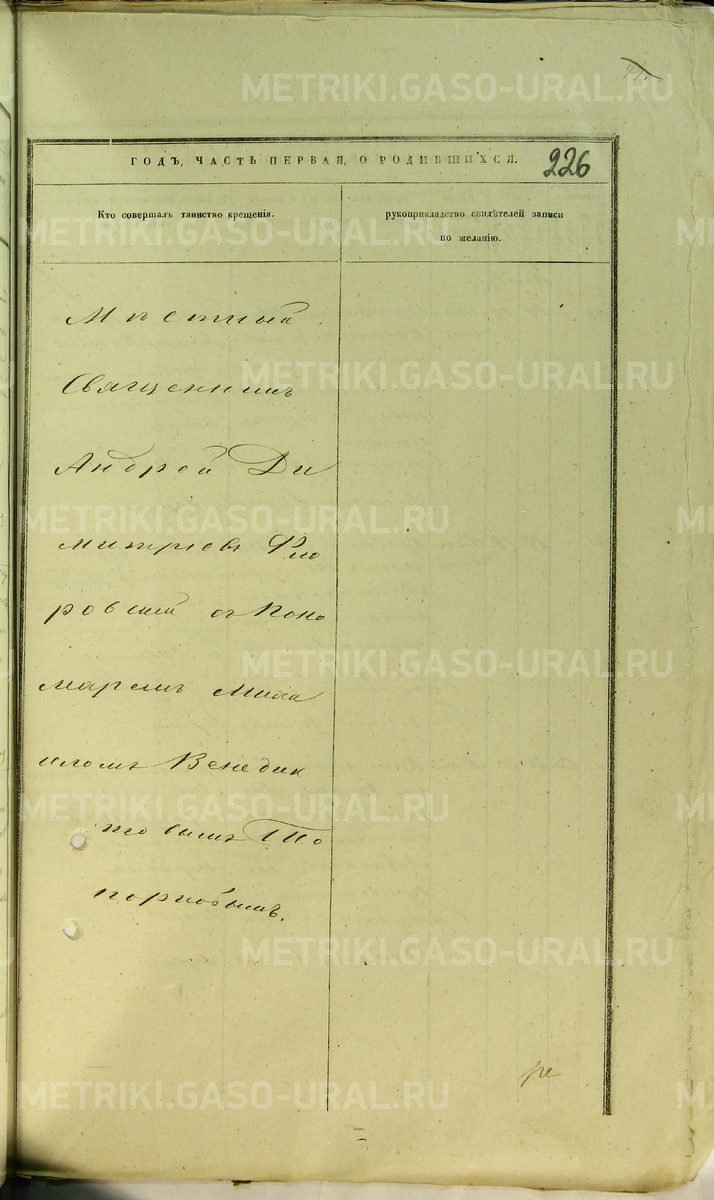 ГОДЪ, ЧАСТЬ ПЕРВАЯ, О РОДИВШИХСЯ.
226
Кто совершалъ таинство крещенія.
рукоприкладство свидѣтелей записи
по желанію.
Мѣстный
Священникъ
Андрей Ди
митріевъ Фло
ровскій съ Поно
маремъ Миха
иломъ Венедик
товымъ То
порковымъ.
METRIKI.GASO-URAL.RU